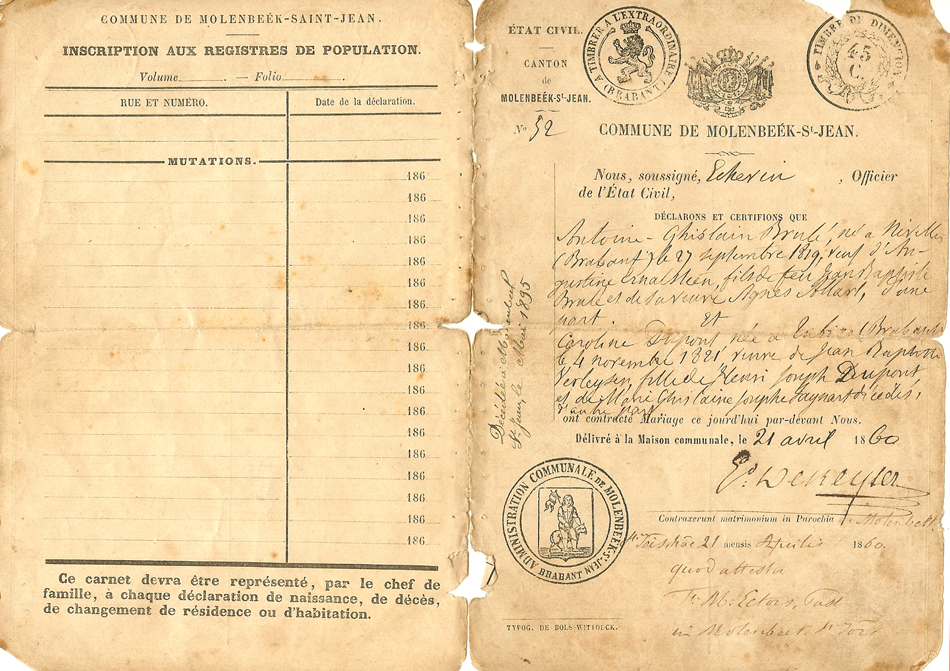 COMMUNE DE MOLENBEÉK-SAINT-JEAN.
INSCRIPTION AUX REGISTRES DE POPULATION.
Volume . — Folio .
RUE ET NUMÉRO.
Date de la déclaration.
MUTATIONS.
186
186
186
186
186
186
186
186
186
186
186
186
186
186
186
186
186
186
Ce carnet devra être représenté, par le chef de
famille, à chaque déclaration de naissance, de décès,
de changement de résidence ou d'habitation.
ÉTAT CIVIL.
CANTON
de
MOLENBEÉK-St-JEAN.
No 52
TIMBRE A L'EXTRAORDINAIRE
(BRABANT)
TIMBRE DE DIMENSION
45
C.
COMMUNE DE MOLENBEÉK-St-JEAN.
Nous, soussigné, Echevin , Officier
de l'État Civil,
DÉCLARONS ET CERTIFIONS QUE
Antoine-Ghislain Brulé, né à Nivelles
(Brabant) le 27 septembre 1819, veuf d'Au-
gustine, fils de feu Jean Baptiste
Brulé et de sa veuve Agnès Allart, d'une
part. Et
Caroline Dupont née à Tubize (Brabant)
le 4 novembre 1821 veuve de Jean Baptiste
Verleysen, fille de Henri Joseph Dupont
et de Marie Ghislaine Josephe décédés,
d'autre part
ont contracté Mariage ce jourd'hui par-devant Nous.
Délivré à la Maison communale, le 21 avril 1860
Décédé à Molenbeek
St Jean, le Mai 1895
ADMINISTRATION COMMUNALE DE MOLENBEEK-St-JEAN
BRABANT
Contraxerunt matrimonium in Parochia Molenbeek
21 mensis Aprilis 1860
quod attestor
in Molenbeek St
TYPOG. DE BOLS-WITTOUCK.